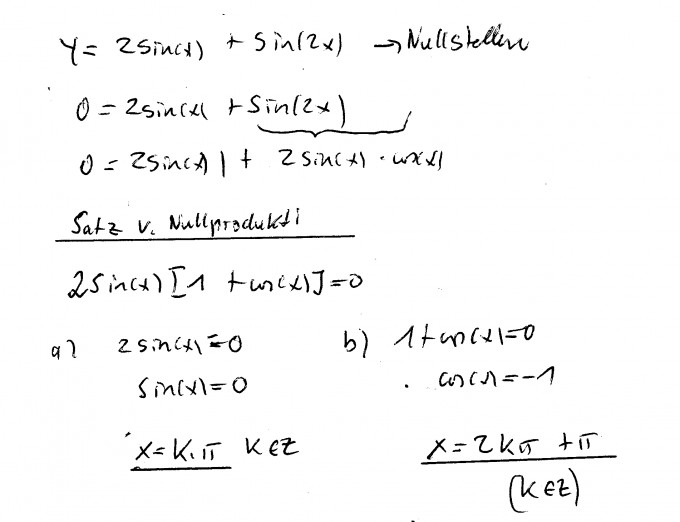 y = 2sin(x) + sin(2x) → Nullstellen
0 = 2sin(x) + sin(2x)
0 = 2sin(x) + 2sin(x) · cos(x)
Satz v. Nullprodukt:
2sin(x) [1 + cos(x)] = 0
a) 2sin(x) = 0
sin(x) = 0
x = k·π k∈Z
b) 1 + cos(x) = 0
cos(x) = -1
x = 2kπ + π
(k∈Z)